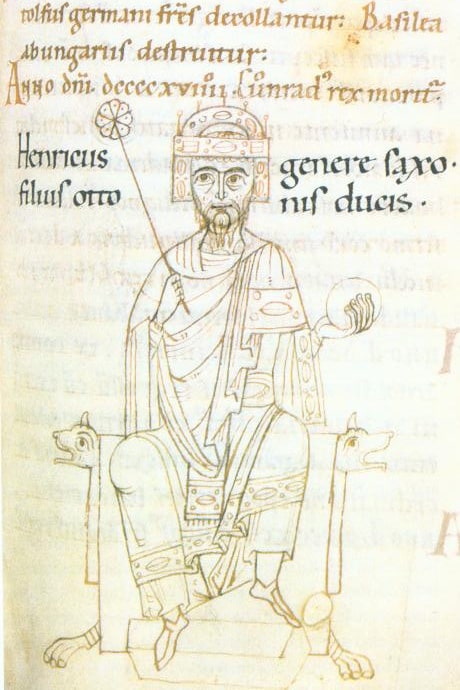 tolfus germani fr̅es decollantur: Basilea
abungariis destruitur:
Anno dn̅i. dccccxviiii. Cůnrad' rex morit̅.
Henricus genere saxo·
filius otto nis ducis·